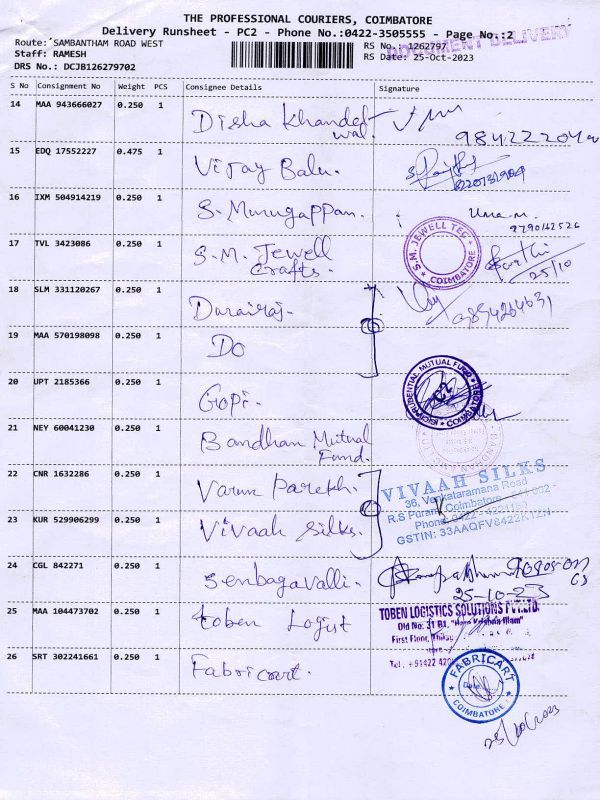 THE PROFESSIONAL COURIERS, COIMBATORE
Delivery Runsheet - PC2 - Phone No.:0422-3505555 - Page No.:2
DOCUMENT DELIVERY
Route: SAMBANTHAM ROAD WEST
Staff: RAMESH
DRS No.: DCJB126279702
RS No.: 1262797
RS Date: 25-Oct-2023
S No Consignment No Weight PCS Consignee Details Signature
14 MAA 943666027 0.250 1 Disha Khandelwal.
15 EDQ 17552227 0.475 1 Vijay Balu.
16 IXM 504914219 0.250 1 S. Murugappan. Uma.m.
9790142526
17 TVL 3423086 0.250 1 S.M. Jewell
Crafts.
S.M. JEWELL TEC
COIMBATORE
25/10
18 SLM 331120267 0.250 1 Durairaj.
19 MAA 570198098 0.250 1 Do
20 UPT 2185366 0.250 1 Gopi.
PRUDENTIAL MUTUAL FUND
21 NEY 60041230 0.250 1 Bandhan Mutual
Fund.
22 CNR 1632286 0.250 1 Varun Parekh.
23 KUR 529906299 0.250 1 Vivaah Silks.
VIVAAH SILKS
36, Venkataramana Road
R.S Puram, Coimbatore
Phone: 0422
GSTIN: 33AAQFV8422K1ZN
24 CGL 842271 0.250 1 Senbagavalli.
25-10-23
25 MAA 104473702 0.250 1 Toben Logist
TOBEN LOGISTICS SOLUTIONS PVT.LTD.
Old No: 31 B1,
First Floor,
Tel : +91422
26 SRT 302241661 0.250 1 Fabricart.
FABRICART
Date
COIMBATORE